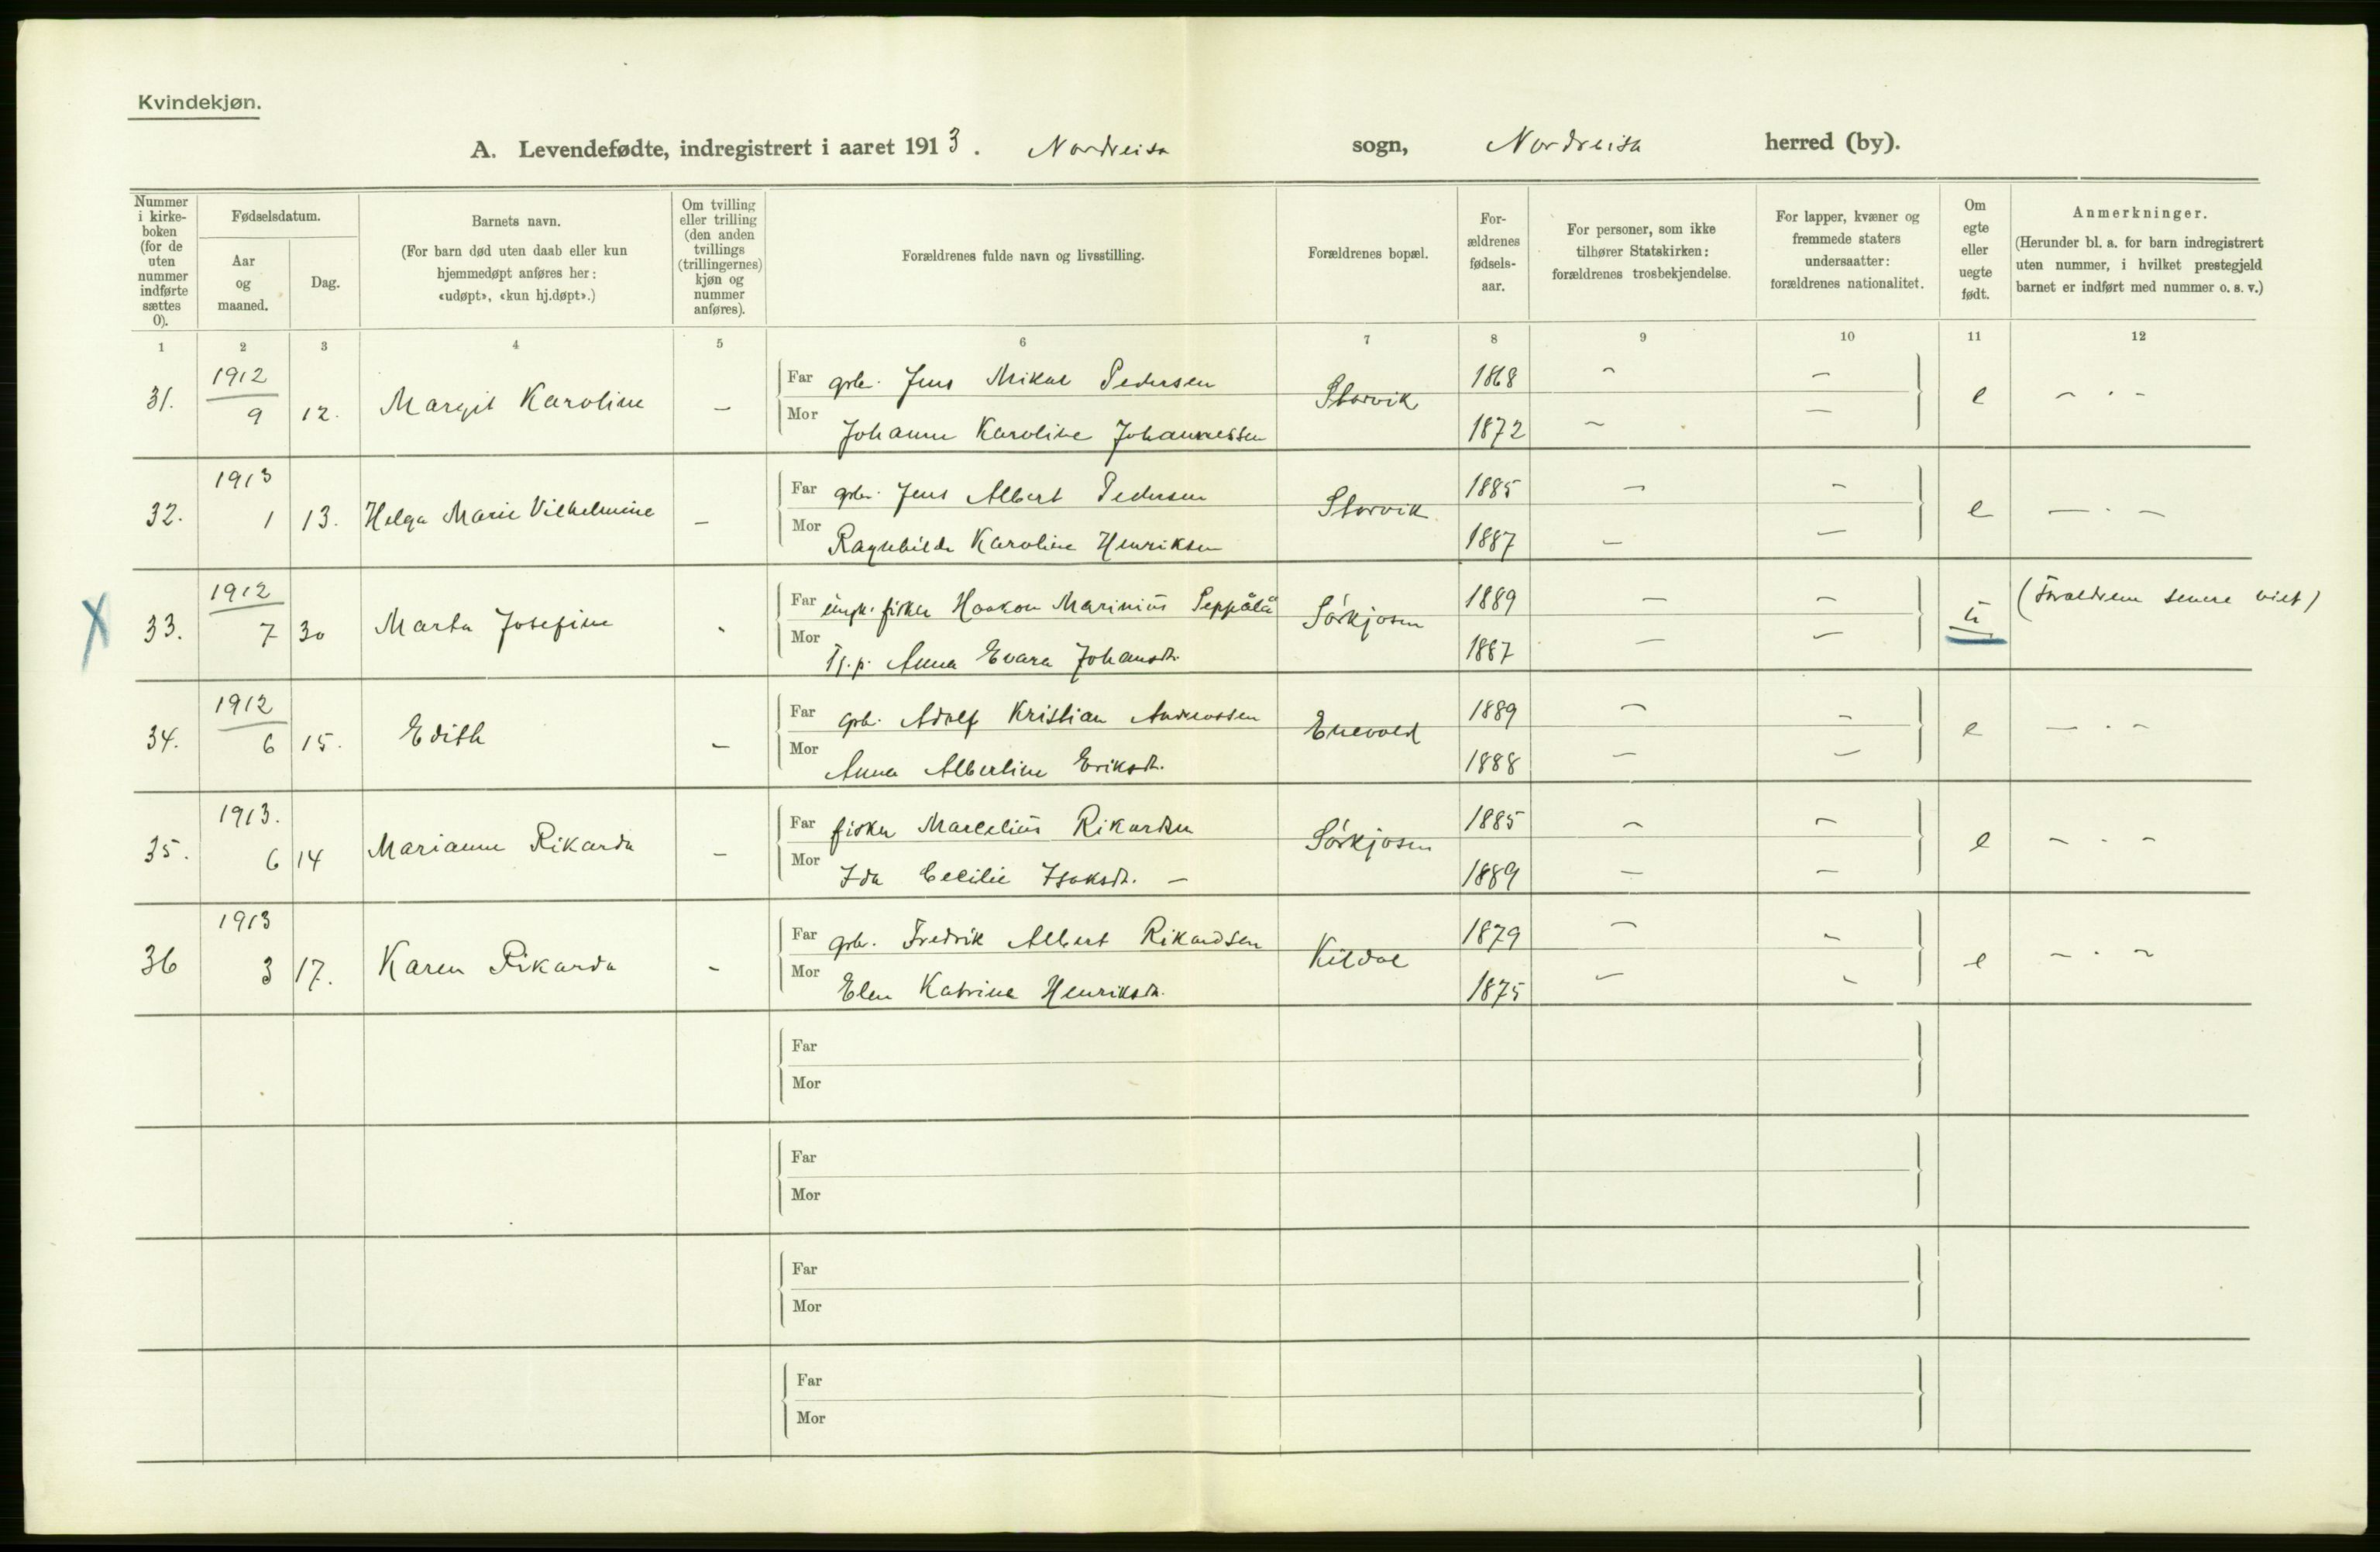 Kvindekjøn.
A. Levendefødte, indregistrert i aaret 1913. Nordreisa sogn, Nordreisa herred (by).
Nummer i kirke-boken (for de uten nummer indførte sættes 0).
Fødselsdatum.
Aar og maaned.
Dag.
Barnets navn.
(For barn død uten daab eller kun hjemmedøpt anføres her: «udøpt», «kun hj.døpt».)
Om tvilling eller trilling (den anden tvillings (trillingernes) kjøn og nummer anføres).
Forældrenes fulde navn og livsstilling.
Forældrenes bopæl.
For-ældrenes fødsels-aar.
For personer, som ikke tilhører Statskirken: forældrenes trosbekjendelse.
For lapper, kvæner og fremmede staters undersaatter: forældrenes nationalitet.
Om egte eller uegte født.
Anmerkninger.
(Herunder bl. a. for barn indregistrert uten nummer, i hvilket prestegjeld barnet er indført med nummer o. s. v.)
1 2 3 4 5 6 7 8 9 10 11 12
31. 1912 9 12. Margit Karoline – Far grbr. Jens Mikal Pedersen Storvik 1868 – – e – . –
Mor Johanne Karoline Johannessen 1872 – –
32. 1913 1 13. Helga Marie Vilhelmine – Far grbr. Jens Albert Pedersen Storvik 1885 – – e – . –
Mor Ragnhilda Karoline Henriksen 1887 – –
X 33. 1912 7 30 Marta Josefine - Far ungk. fisker Haakon Marinius Seppälä Sørkjosen 1889 – – u (Foraeldrene senere viet)
Mor Anna Evara Johansdtr. 1887 – –
34. 1912 6 15. Edith – Far grb. Adolf Kristian Andreassen 1889 – – e – . –
Mor Anna Albertine Eriksdtr. 1888 – –
35. 1913. 6 14 Marianne Rikarda – Far fisker Marcelius Rikardsen Sørkjosen 1885 – – e – . –
Mor Ida Cecilie Isaksdtr. – 1889 – –
36 1913 3 17. Karen Rikarda – Far grbr. Fredrik Albert Rikardsen Kildal 1879 – – e – . –
Mor Elen Katrine Henriksdtr. 1875 – –
Far
Mor
Far
Mor
Far
Mor
Far
Mor